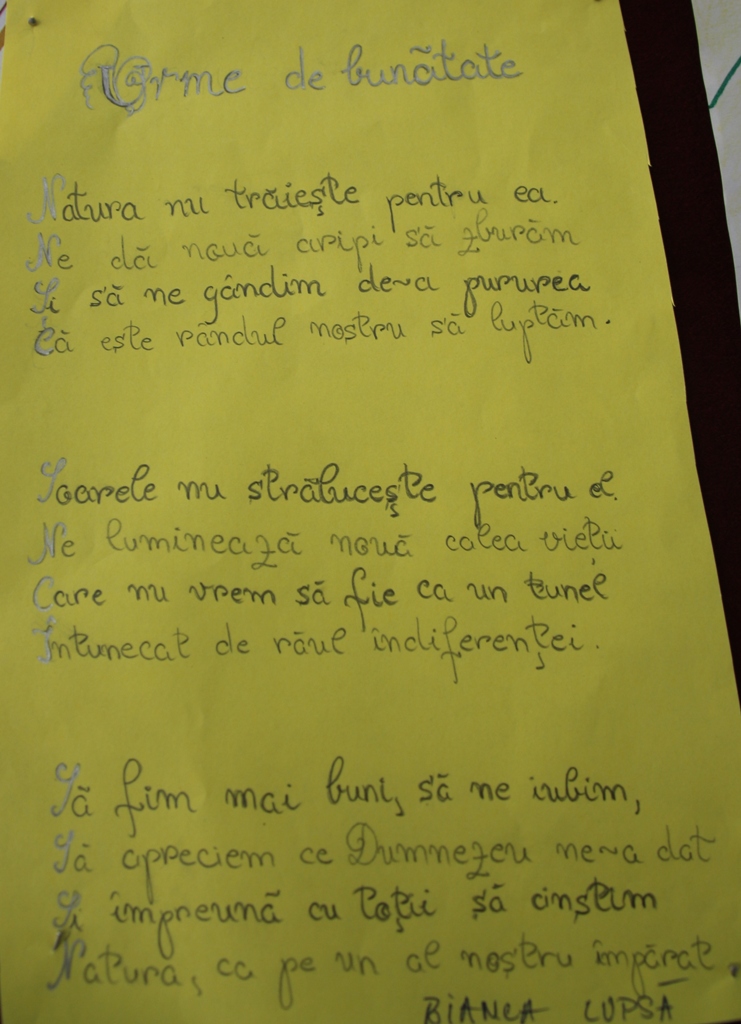 Urme de bunătate
Natura nu trăiește pentru ea.
Ne dă nouă aripi să zburăm
Și să ne gândim de~a pururea
Că este rândul nostru să luptăm.
Soarele nu strălucește pentru el.
Ne luminează nouă calea vieții
Care nu vrem să fie ca un tunel
Întunecat de răul indiferenței.
Să fim mai buni, să ne iubim,
Să apreciem ce Dumnezeu ne~a dat
Și împreună cu toții să cinstim
Natura, ca pe un al nostru împărat.
BIANCA LUPSA